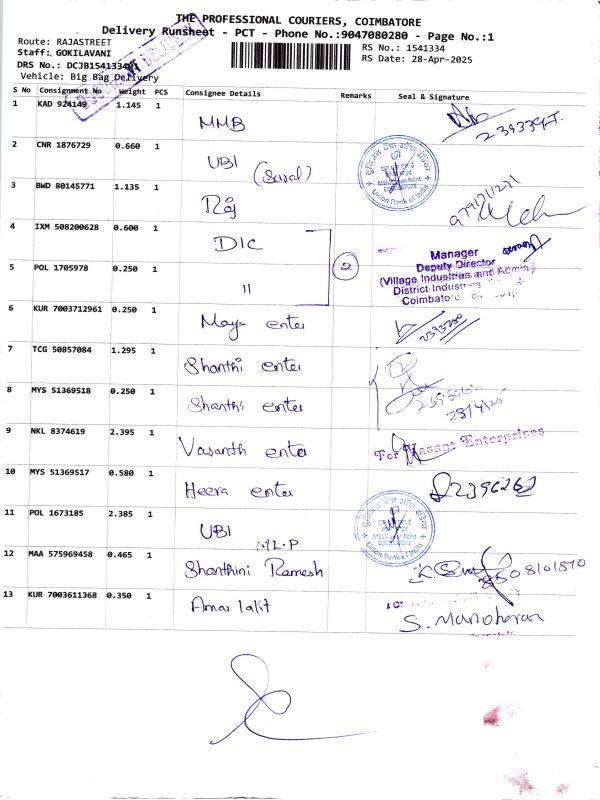 THE PROFESSIONAL COURIERS, COIMBATORE
Delivery Runsheet - PCT - Phone No.:9047080280 - Page No.:1
Route: RAJASTREET
RS No.: 1541334
Staff: GOKILAVANI
RS Date: 28-Apr-2025
DRS No.: DCJB154133401
Vehicle: Big Bag Delivery
S No Consignment No Weight PCS Consignee Details Remarks Seal & Signature
1 KAD 924149 1.145 1 MMB
2 CNR 1876729 0.660 1 UBI
Union Bank of India
3 BWD 80145771 1.135 1 Raj
4 IXM 508200628 0.600 1 DIC
5 POL 1705978 0.250 1 11 2
Manager
Deputy Director
(Village Industries and Admin)
District Industries
Coimbatore
6 KUR 7003712961 0.250 1 Maya enter
7 TCG 50857084 1.295 1 Shanthi enter
8 MYS 51369518 0.250 1 Shanthi enter
28/4/25
9 NKL 8374619 2.395 1 Vasanth enter For Vasant Enterprises
10 MYS 51369517 0.580 1 Heera enter 2396262
11 POL 1673185 2.385 1 UBI
Union Bank of India
12 MAA 575969458 0.465 1 Shanthini Ramesh 8508101870
13 KUR 7003611368 0.350 1 Amar lalit S. Manoharan